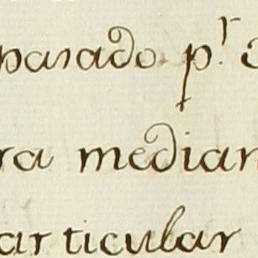 pasado p.r
ra median
articular